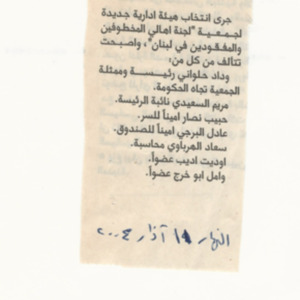 جرى انتخاب هيئة ادارية جديدة
لجمعية "لجنة اهالي المخطوفين
والمفقودين في لبنان"، واصبحت
تتألف من كل من:
وداد حلواني رئيسة وممثلة
الجمعية تجاه الحكومة.
مريم السعيدي نائبة الرئيسة.
حبيب نصار اميناً للسر.
عادل البرجي أميناً للصندوق.
سعاد الهرباوي محاسبة.
اوديت اديب عضواً.
وامل ابو خرج عضواً.
النهار ١٩ آذار ٢٠٠٤